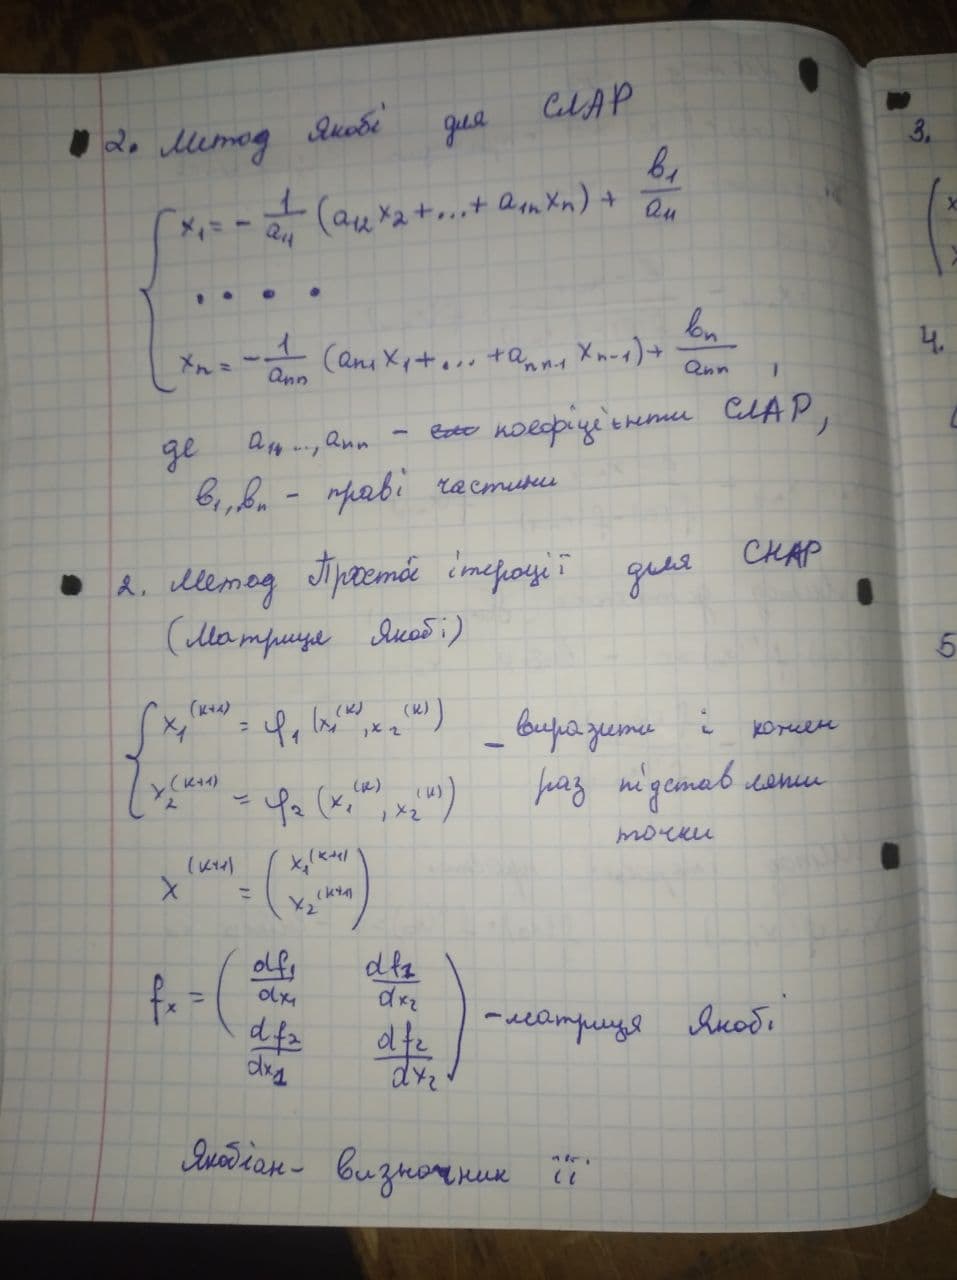 2. Метод Якобі для СЛАР
x₁ = - 1/a₁₁ (a₁₂x₂ + ... + a₁ₙxₙ) + b₁/a₁₁
. . . .
xₙ = - 1/aₙₙ (aₙ₁x₁ + ... + aₙₙ₋₁ xₙ₋₁) + bₙ/aₙₙ ,
де a₁₁, ..., aₙₙ - коефіцієнти СЛАР,
b₁,..bₙ - праві частини
2. Метод Простої ітерації для СНАР
(Матриця Якобі)
x₁^(k+1) = φ₁(x₁^(k), x₂^(k)) - виразити і кожен
x₂^(k+1) = φ₂(x₁^(k), x₂^(k)) раз підставляти
точки
x^(k+1) = (x₁^(k+1) x₂^(k+1))
fₓ = (df₁/dx₁ df₁/dx₂
df₂/dx₁ df₂/dx₂) - матриця Якобі
Якобіан - визначник її
3.
4.
5